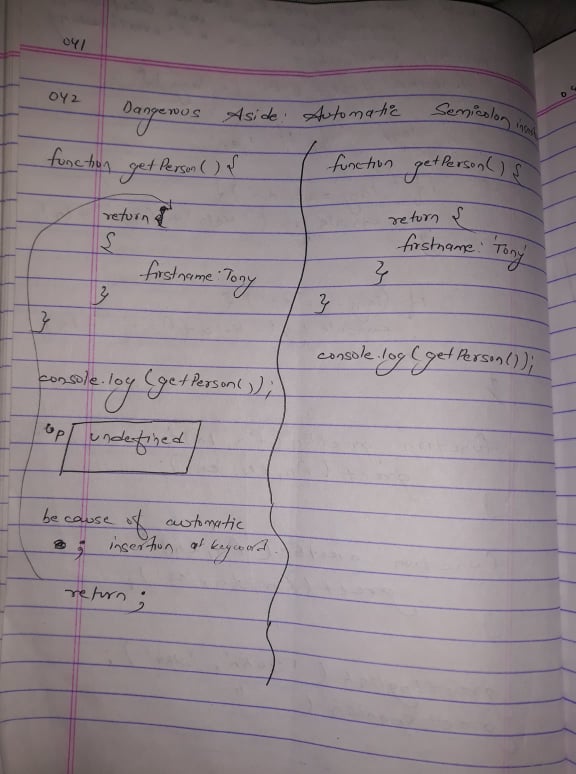 041
042 Dangerous Aside: Automatic Semicolon
function getPerson() {
return
{
firstname: Tony
}
}
console.log(getPerson());
op undefined
because of automatic
; insertion at keyword.
return ;
function getPerson() {
return {
firstname: 'Tony'
}
}
console.log(getPerson());